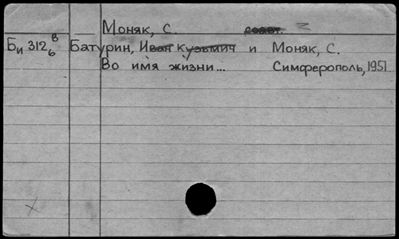 Моняк, С. совет.
Би 312 8/6 Батурин, Иван Кузьмич и Моняк, С.
Во имя жизни... Симферополь, 1951.